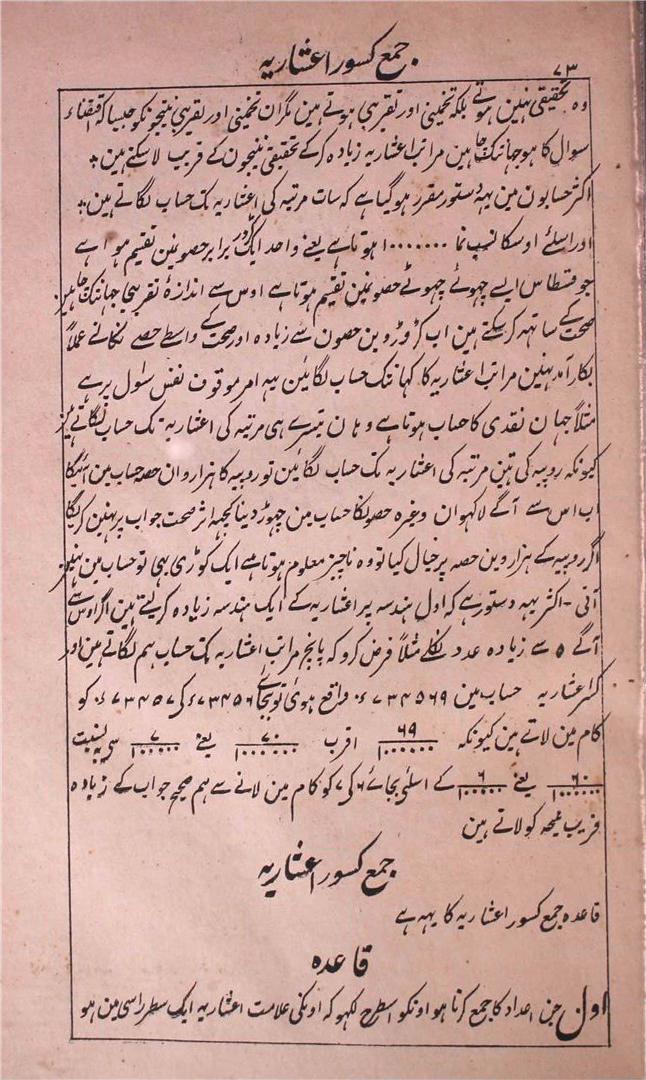 ۷۳
جمع کسور اعشاریہ
وہ تحقیقی نہین ہوتے بلکہ تخمینی اور تقریبی ہوتے ہین مگر ان تخمینی اور تقریبی نتیجونکو جیسا کہ اقتضاء
سوال کا ہو جہانتک چاہین مراتب اعشاریہ زیادہ کر کے تحقیقی نتیجون کے قریب لا سکتے ہین ؞
اکثر حسابون مین یہہ دستور مقرر ہو گیا ہے کہ سات مرتبہ کی اعشاریہ تک حساب لگاتے ہین ؞
اور اسلئے اوسکا نسب نما ۱۰۰۰۰۰۰۰ ہوتا ہے یعنے واحد ایک کرور برابر حصونمین تقسیم ہوا ہے
جو قسطاس ایسے چھوٹے چھوٹے حصونمین تقسیم ہوتا ہے اوس سے اندازۂ تقریبی جہانتک چاہین
صحت کے ساتھہ کر سکتے ہین اب کڑوڑوین حصون سے زیادہ اور صحت کے واسطے حصے نکالنے عملاً
بکار آمد نہین مراتب اعشاریہ کا کہانتک حساب لگائین یہہ امر موقوف نفس سوال پر ہے
مثلاً جہان نقدی کا حساب ہوتا ہے وہان تیسرے ہی مرتبہ کی اعشاریہ تک حساب لگاتے ہین
کیونکہ روپیہ کی تین مرتبہ کی اعشاریہ تک حساب لگائین تو روپیہ کا ہزاروان حصہ حساب مین آئیگا
اب اس سے آگے لاکہوان وغیرہ حصونکا حساب مین چہوڑ دینا کچہہ اثر صحت جواب پر نہین کریگا
اگر روپیہ کے ہزاروین حصہ پر خیال کیا تو وہ ناچیز معلوم ہوتا ہے ایک کوڑی بہی تو حساب مین نہین
آتی - اکثر یہہ دستور ہے کہ اول ہندسہ پر اعشاریہ کے ایک ہندسہ زیادہ کر لیتے ہین اگر اوس سے
آگے ۵ سے زیادہ عدد نکلے مثلاً فرض کرو کہ پانچ مراتب اعشاریہ تک حساب ہم لگاتے ہین اور
کسر اعشاریہ حساب مین ۰ء۷۳۴۵۶۹ واقع ہوئی تو بجائے ۰ء۷۳۴۵۶ کی ۰ء۷۳۴۵۷ کو
کام مین لاتے ہین کیونکہ ۶۹/۱۰۰۰۰۰۰ اقرب ۷۰/۱۰۰۰۰۰۰ یعنے ۷/۱۰۰۰۰۰ سے بہ نسبت
۶۰/۱۰۰۰۰۰۰ یعنے ۶/۱۰۰۰۰۰ کے اسلئے بجائے ۶ کی ۷ کو کام مین لانے سے ہم صحیح جواب کے زیادہ
قریب نتیجہ کو لاتے ہین
جمع کسور اعشاریہ
قاعدہ جمع کسور اعشاریہ کا یہہ ہے
قاعدہ
اول جن اعداد کا جمع کرنا ہو اونکو اسطرح لکہو کہ اونکی علامت اعشاریہ ایک سطر راسی مین ہو